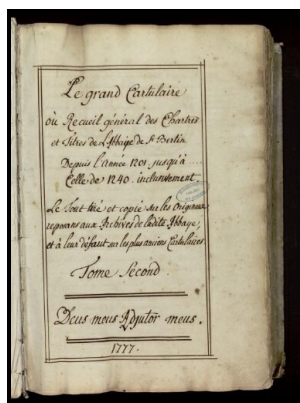 Le grand Cartulaire
où Recueil général des Chartres
et Titres de L'Abbaye de St Bertin
Depuis l'année 1201. jusqu'à
Celle de 1240. inclusivement
Le Tout tiré et copié sur les Originaux
reposans aux Archives de ladite Abbaye,
et à leur défaut sur les plus anciens Cartulaires.
Tome Second
Deus meus Adjutor meus.
1777.